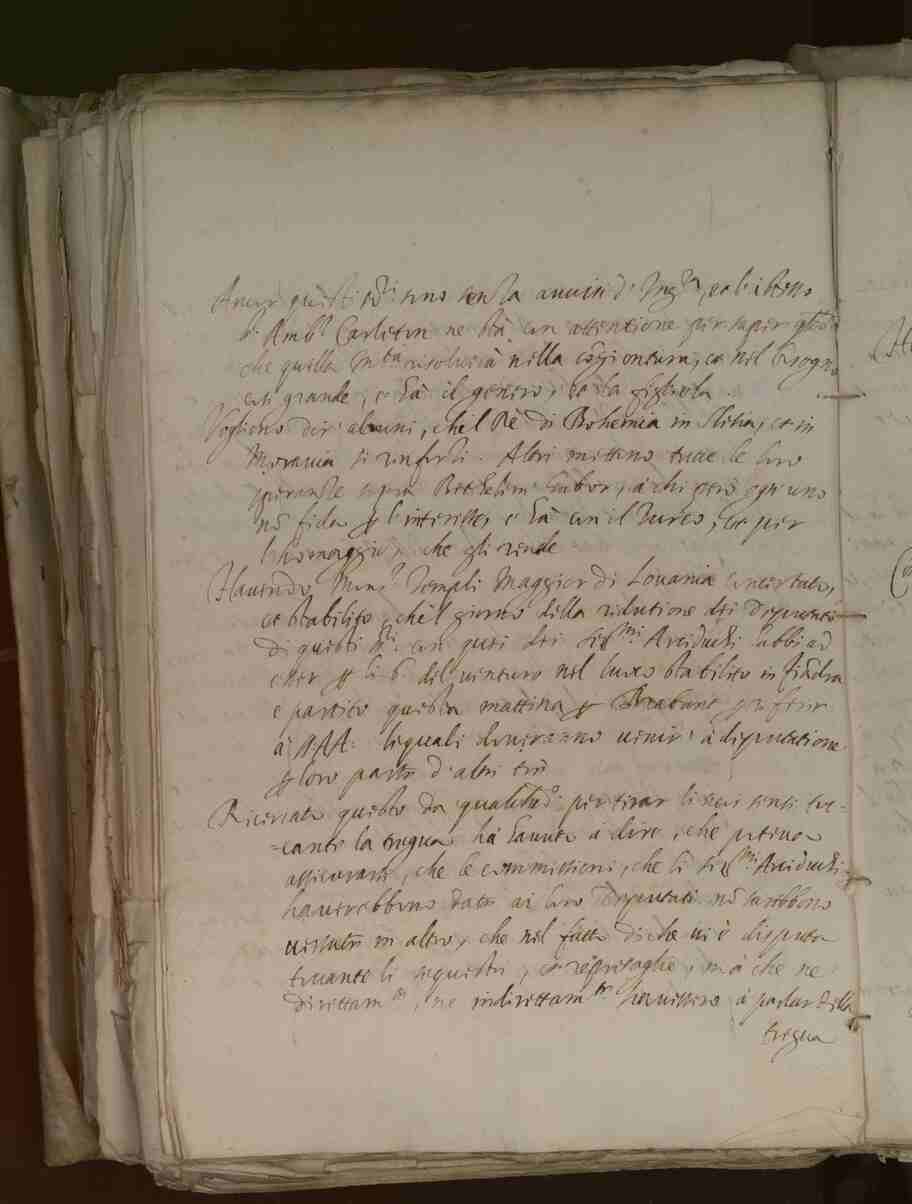 Ancor questi sri sono senza avvisi d'Ingra, et l'istesso
sr Ambr Carleton ne stà con attentione per saper
che quella Mta risolverà nella congiontura, et nel bisogno
così grande, c'hà il genero, et la figliola.
Vogliono dir' alcuni, che'l Rè di Bohemia in Slesia, et in
Moravia si rinforzi. Altri mettono tutte le loro
speranze sopra Bethelem Gabor, à chi però ogn'uno
nō fida per l'interesse, c'hà con il Turco, et per
l'homaggio, che gli rende
Havendo Monsr Maggior di Lovania concertato,
et stabilito, che'l giorno della ridutione dei Deputati
di questi sri con quei dei Sermi Arciduchi habbi ad
esser per li 6 del venturo nel luoco stabilito in Fiādra
è partito questa mattina per Brabant per riferir
à SSAA: liquali doveranno venir' à deputatione
per loro parte d'altri trè
Ricercato questo da qualched: per tirar li suoi sensi toc=
=cante la tregua hà havuto à dire, che poteva
assicurarsi, che le commissioni, che li Sermi Arciduchi
haverebbono dato ai loro Deputati nō sarebbono
versute in altro, che nel fatto di che vi è disputa
toccante li sequestri, et represaglie, mà che ne
direttamte, ne indirettamte havessero à parlar della
tregua